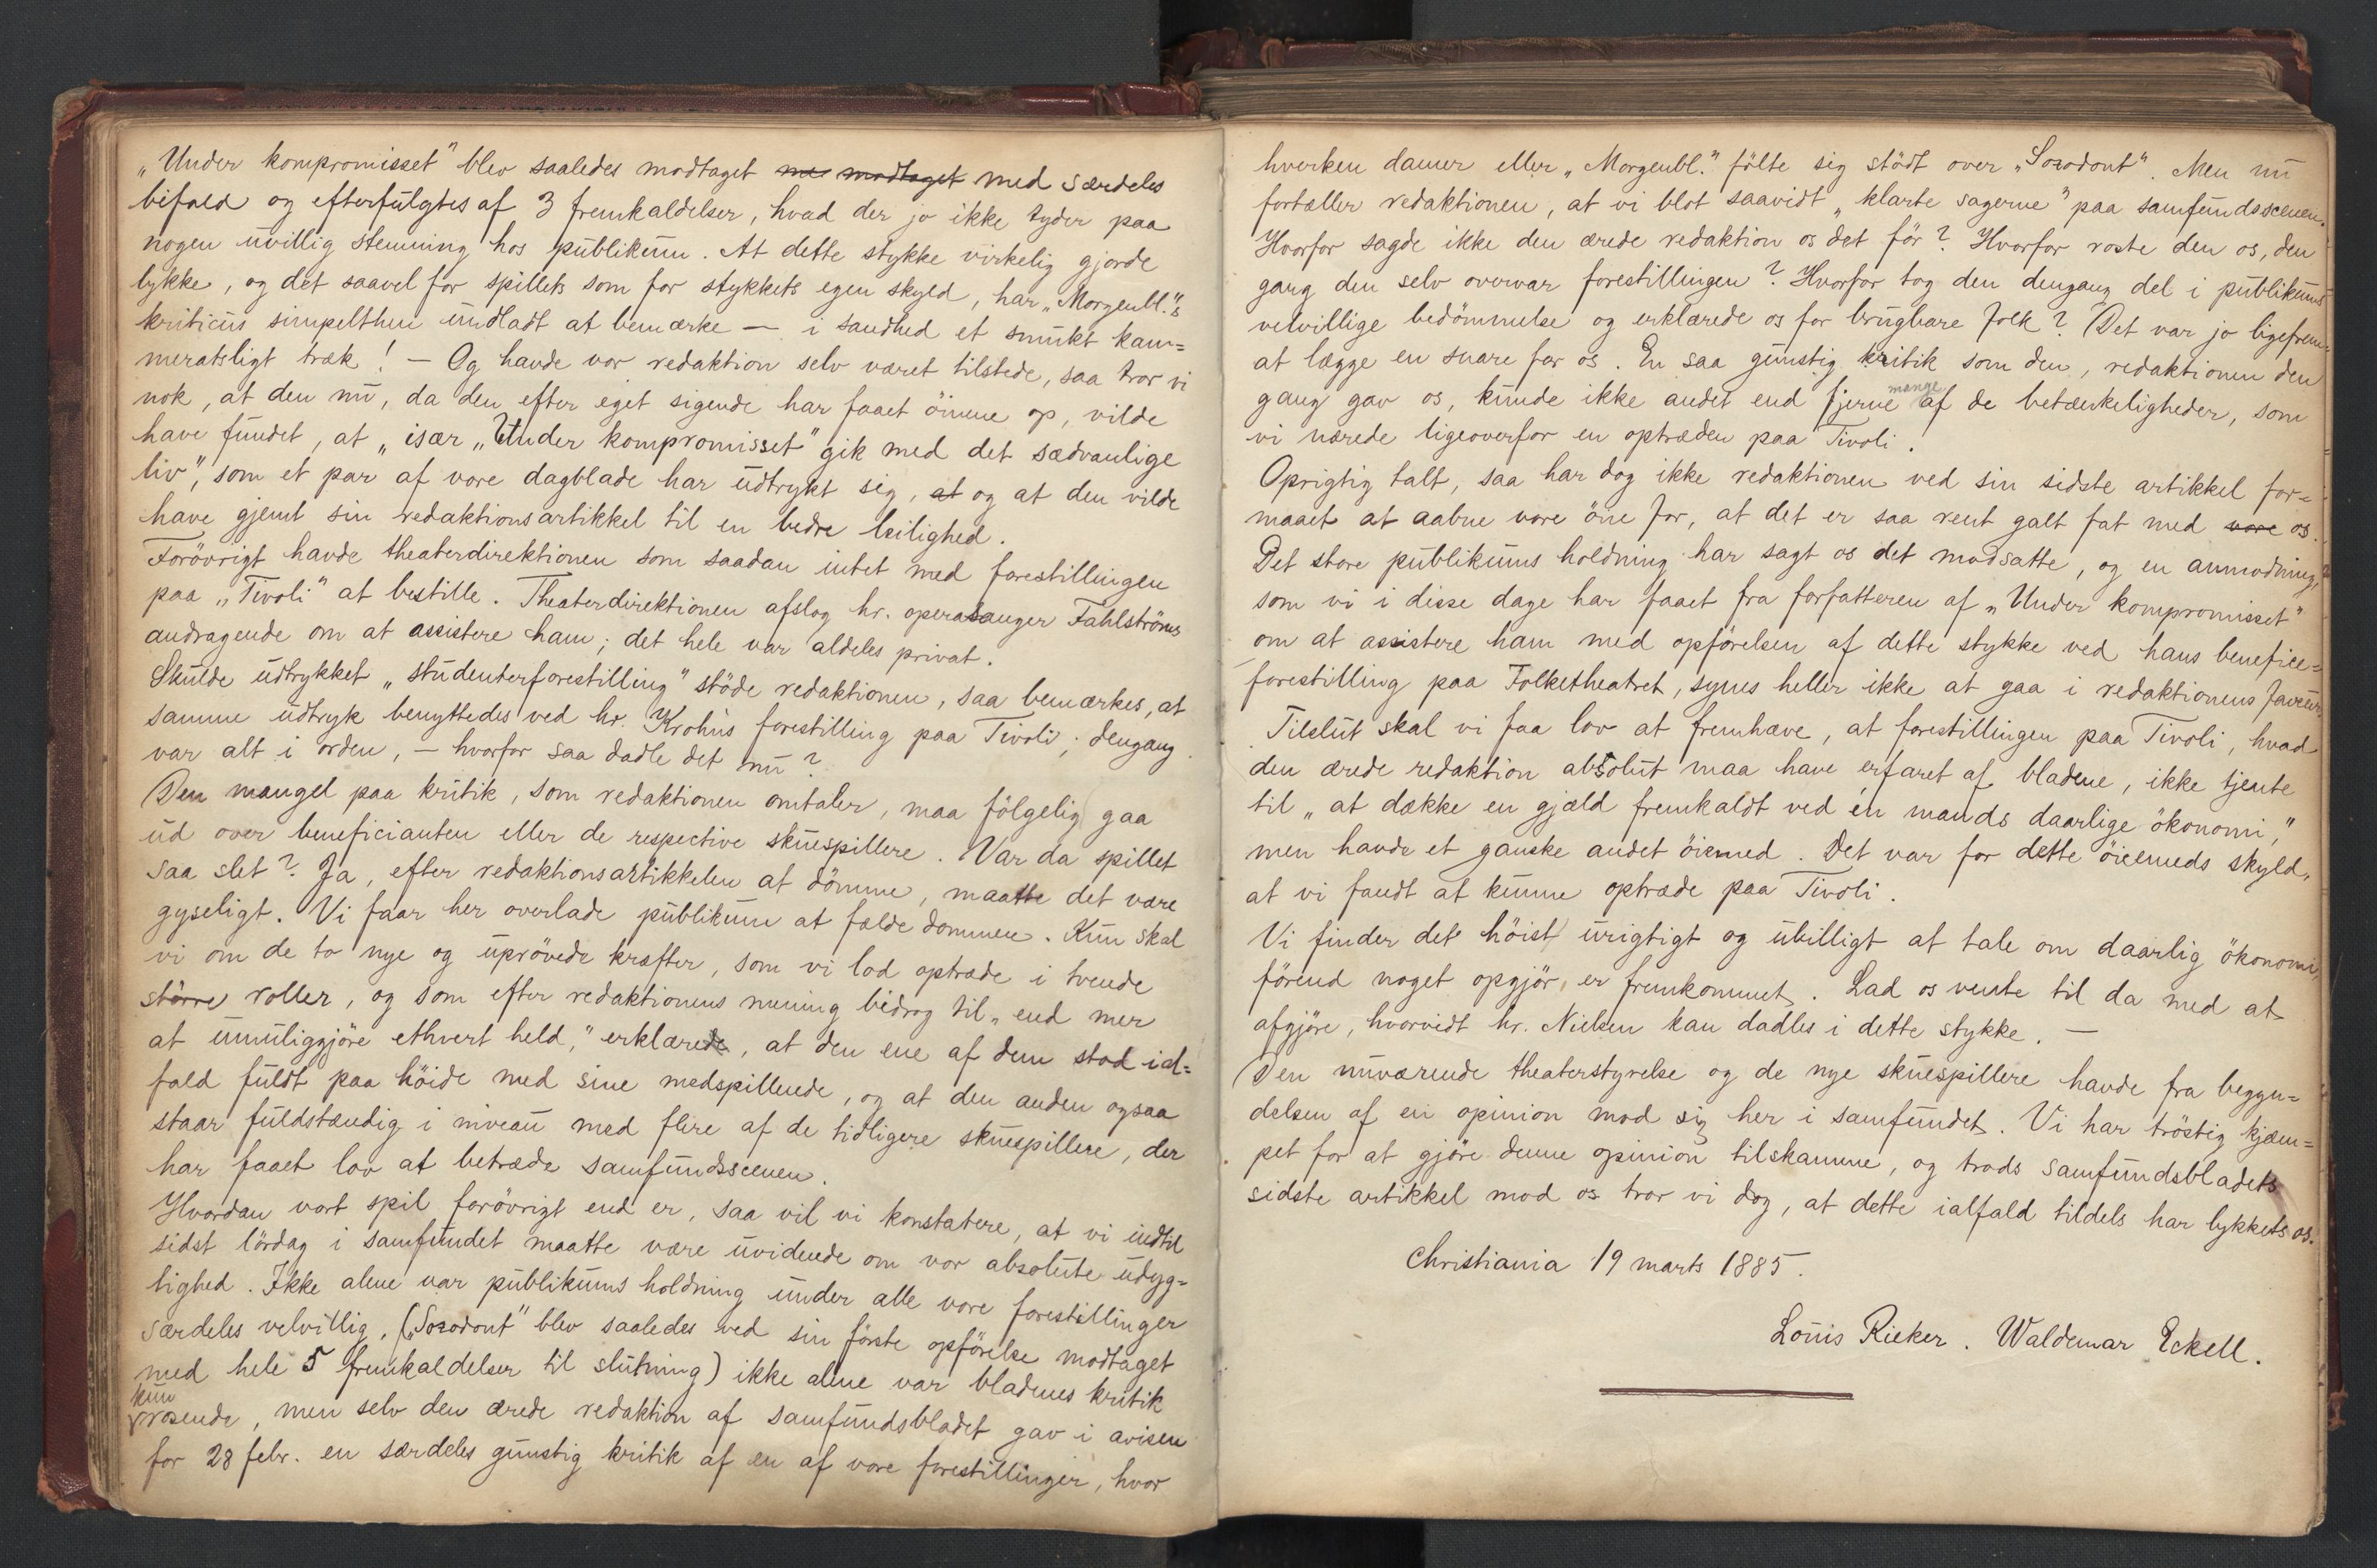 „Under kompromisset" blev saaledes modtaget med modtaget med særdeles
bifald og efterfulgtes af 3 fremkaldelser, hvad der jo ikke tyder paa
nogen uvillig stemning hos publikum. At dette stykke virkelig gjorde
lykke, og det saavel for spillets som for stykkets egen skyld, har „Morgenbl."s
kriticus simpelthen undladt at bemærke — i sandhed et smukt kam=
meratsligt træk! — Og havde vor redaktion selv været tilstede, saa tror vi
nok, at den nu, da den efter eget sigende har faaet öinene op, vilde
have fundet, at „især „Under kompromisset" gik med det sædvanlige
liv", som et par af vore dagblade har udtrykt sig, at og at den vilde
have gjemt sin redaktionsartikkel til en bedre leilighed.
Forövrigt havde theaterdirektionen som saadan intet med forestillingen
paa „Tivoli" at bestille. Theaterdirektionen afslog hr. operasanger Fahlströms
andragende om at assistere ham; det hele var aldeles privat.
Skulde udtrykket „studenterforestilling" stöde redaktionen, saa bemærkes, at
samme udtryk benyttedes ved hr. Krohns forestilling paa Tivoli; dengang
var alt i orden, — hvorfor saa dadle det nu?
Den mangel paa kritik, som redaktionen omtaler, maa fölgelig gaa
ud over beneficianten eller de respective skuespillere. Var da spillet
saa slet? Ja, efter redaktionsartikkelen at dömme, maatte det være
gyseligt. Vi faar her overlade publikum at fælde dommen. Kun skal
vi om de to nye og uprövede kræfter, som vi lod optræde i tvende
större roller, og som efter redaktionens mening bidrog til „end mer
at umuliggjöre ethvert held," erklære, at den ene af dem stod ial=
fald fuldt paa höide med sine medspillende, og at den anden ogsaa
staar fuldstændig i niveau med flere af de tidligere skuespillere, der
har faaet lov at betræde samfundsscenen.
Hvordan vort spil forövrigt end er, saa vil vi konstatere, at vi indtil
sidst lördag i samfundet maatte være uvidende om vor absolute udyg=
tighed. Ikke alene var publikums holdning under alle vore forestillinger
særdeles velvillig, („Sozodont" blev saaledes ved sin förste opförelse modtaget
med hele 5 fremkaldelser til slutning) ikke alene var bladenes kritik
kun
rosende, men selv den ærede redaktion af samfundsbladet gav i avisen
for 28 febr. en særdeles gunstig kritik af en af vore forestillinger, hvor
hverken damer eller „Morgenbl." fölte sig stödt over „Sozodont". Men nu
fortæller redaktionen, at vi blot saavidt „klarte sagerne" paa samfundsscenen.
Hvorfor sagde ikke den ærede redaktion os det för? Hvorfor roste den os, den
gang den selv overvar forestillingen? Hvorfor tog den dengang del i publikums
velvillige bedömmelse og erklærede os for brugbare folk? Det var jo ligefrem
at lægge en snare for os. En saa gunstig kritik som den, redaktionen den
mange
gang gav os, kunde ikke andet end fjerne af de betænkeligheder, som
vi nærede ligeoverfor en optræden paa Tivoli.
Oprigtig talt, saa har dog ikke redaktionen ved sin sidste artikkel for=
maaet at aabne vore öne for, at det er saa rent galt fat med vore os.
Det store publikums holdning har sagt os det modsatte, og en anmodning,
som vi i disse dage har faaet fra forfatteren af „Under kompromisset"
om at assistere ham med opförelsen af dette stykke ved hans benefice=
forestilling paa Folketheatret, synes heller ikke at gaa i redaktionens faveur.
Tilslut skal vi faa lov at fremhæve, at forestillingen paa Tivoli, hvad
den ærede redaktion absolut maa have erfaret af bladene, ikke tjente
til „at dække en gjæld fremkaldt ved én mands daarlige ökonomi,"
men havde et ganske andet öiemed. Det var for dette öiemeds skyld,
at vi fandt at kunne optræde paa Tivoli.
Vi finder det höist urigtigt og ubilligt at tale om daarlig ökonomi,
förend noget opgjör er fremkommet. Lad os vente til da med at
afgjöre, hvorvidt hr. Nielsen kan dadles i dette stykke. —
Den nuværende theaterstyrelse og de nye skuespillere havde fra begyn=
delsen af en opinion mod sig her i samfundet. Vi har tröstig kjæm=
pet for at gjöre denne opinion tilskamme, og trods samfundsbladets
sidste artikkel mod os tror vi dog, at dette ialfald tildels har lykkets os.
Christiania 19 marts 1885.
Louis Rieker. Waldemar Eckell.